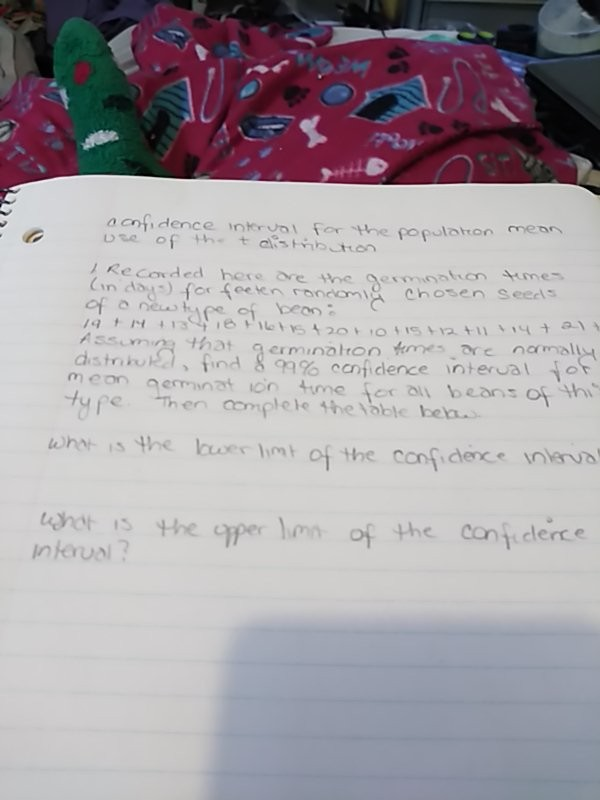 confidence interval for the population mean
use of the t distribution
1. Recorded here are the germination times
(in days) for feeten randomly chosen seeds
of a new type of bean:
19 + 14 + 13 + 18 + 16 + 15 + 20 + 10 + 15 + 12 + 11 + 14 + 21 +
Assuming that germination times are normally
distributed, find a 99% confidence interval for
mean germinat ion time for all beans of this
type. Then complete the table below.
what is the lower limt of the confidence interval
what is the upper limit of the confidence
interval?
MEOW